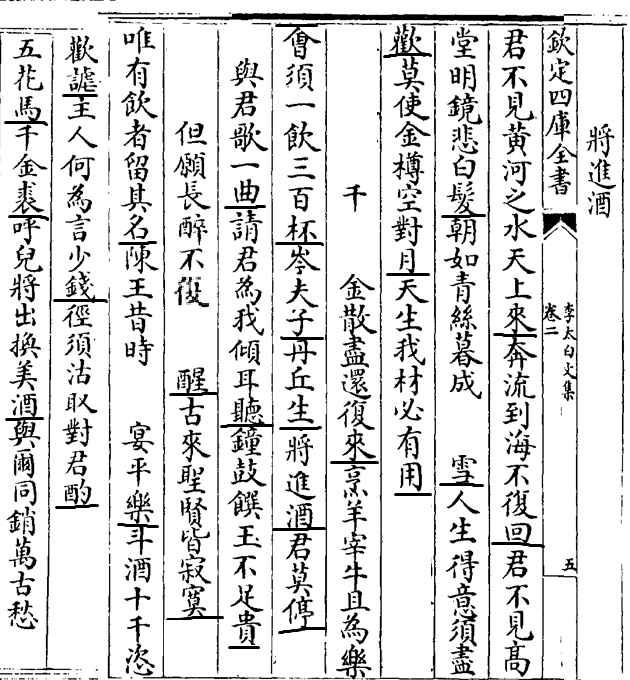 將進酒
欽定四庫全書
李太白文集
卷二
五
君不見黄河之水天上來奔流到海不復回君不見髙
堂明鏡悲白髮朝如青絲暮成雪人生得意須盡
歡莫使金樽空對月天生我材必有用
千金散盡還復來烹羊宰牛且為樂
會須一飲三百杯岑夫子丹丘生將進酒君莫停
與君歌一曲請君為我傾耳聽鐘鼓饌玉不足貴
但願長醉不復醒古來聖賢皆寂寞
唯有飲者留其名陳王昔時宴平樂斗酒十千恣
歡謔主人何為言少錢徑須沽取對君酌
五花馬千金裘呼兒將出換美酒與爾同銷萬古愁